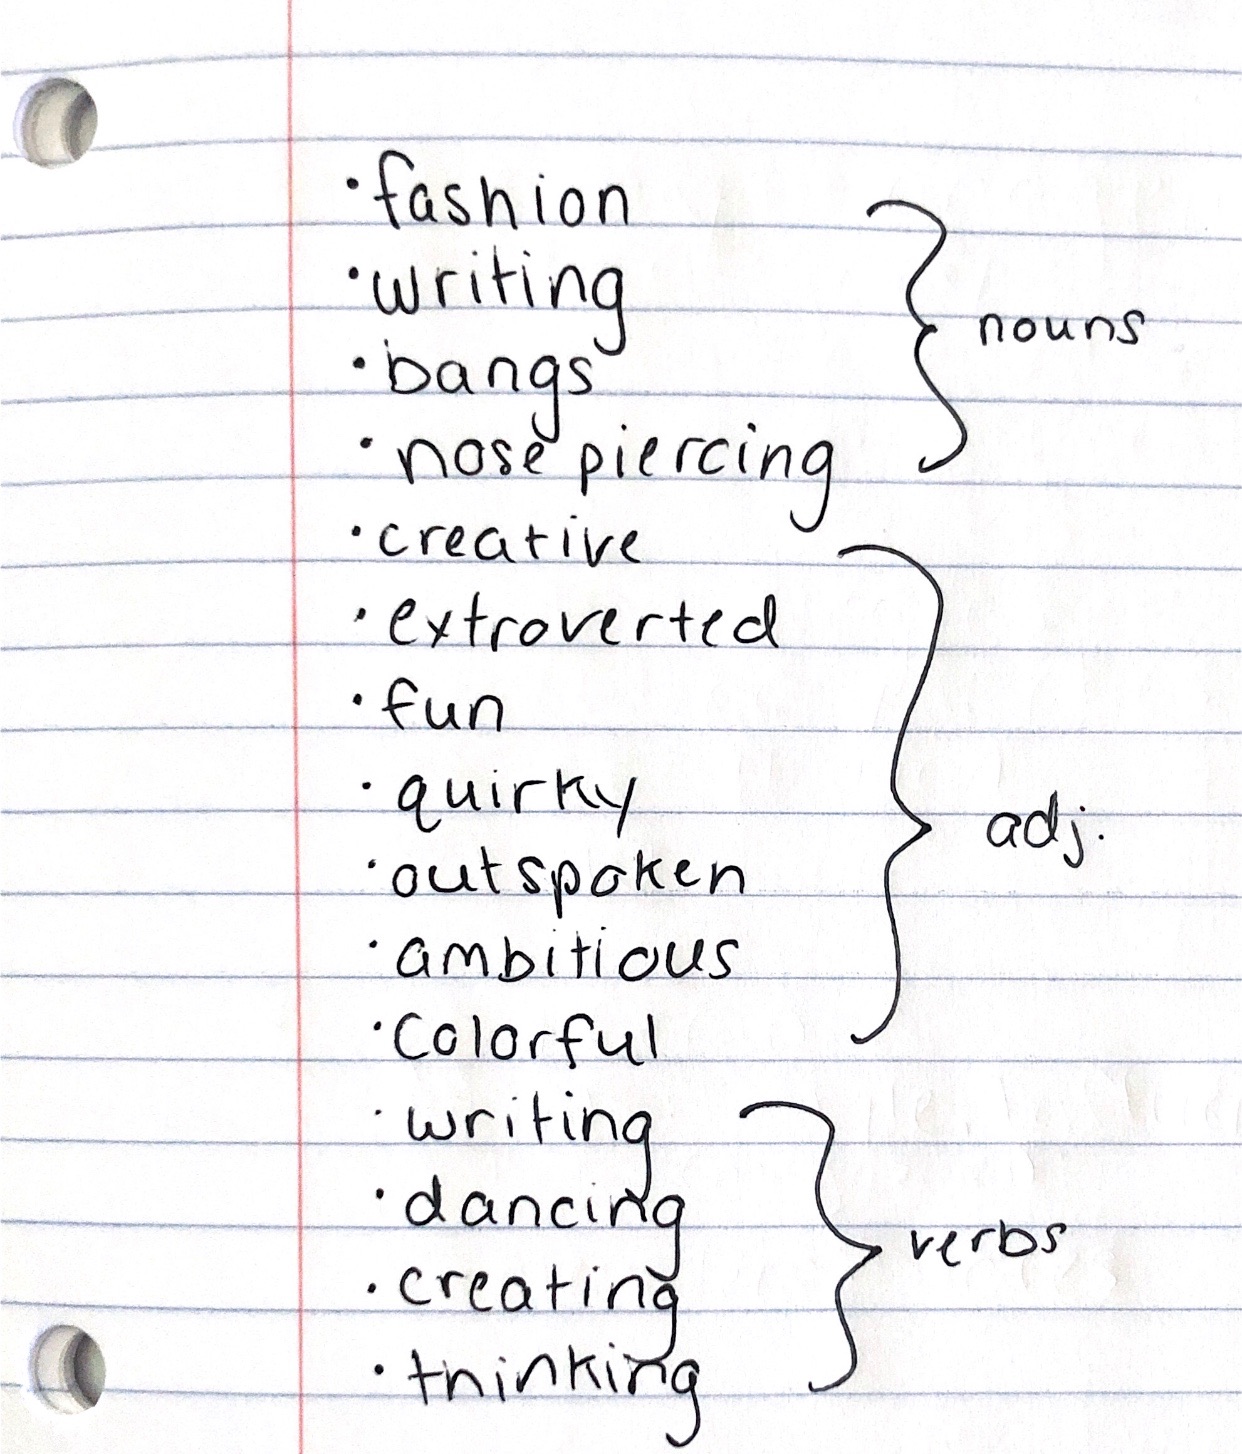 ·fashion
·writing
·bangs
·nose piercing
nouns
·creative
·extroverted
·fun
·quirky
·outspoken
·ambitious
·Colorful
adj.
·writing
·dancing
·creating
·thinking
verbs